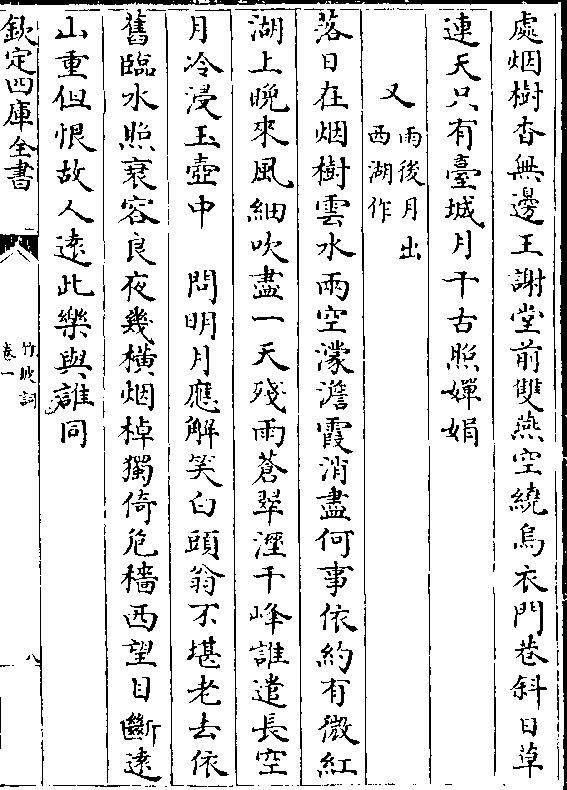 處烟樹杳無邊王謝堂前雙燕空繞烏衣門巷斜日草
連天只有臺城月千古照嬋娟
又雨後月出
西湖作
落日在烟樹雲水兩空濛澹霞消盡何事依約有微紅
湖上晚來風細吹盡一天殘雨蒼翠溼千峰誰遣長空
月冷浸玉壺中　問明月應解笑白頭翁不堪老去依
舊臨水照衰容良夜幾橫烟棹獨倚危檣西望目斷遠
山重但恨故人遠此樂與誰同
欽定四庫全書
竹坡詞
卷一
八